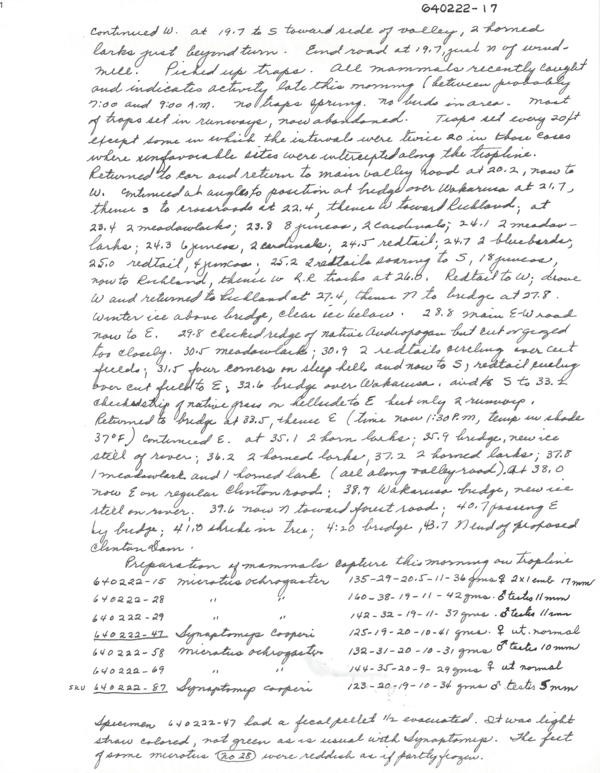 640222-17
continued W. at 19.7 to S toward side of valley, 2 horned
larks just beyond turn. End road at 19.7, just N of wind-
mill. Picked up traps. All mammals recently caught
and indicates activity late this morning (between probably
7:00 and 9:00 A.M. no traps sprung. No birds in area. Most
of traps set in runways, now abandoned. Traps set every 20 ft
except some in which the intervals were twice 20 in those cases
where unfavorable sites were intercepted along the trapline.
Returned to car and return to main valley road at 20.2, now to
W. Continued at angles to position at bridge over Wakarusa at 21.7,
thence S to crossroads at 22.4, thence W toward Richland; at
23.4 2 meadowlarks; 23.8 8 juncos, 2 cardinals; 24.1 2 meadow-
larks; 24.3 6 juncos, 2 cardinals; 24.5 redtail; 24.7 2 bluebirds;
25.0 redtail, 4 juncos; 25.2 2 redtails soaring to S, 18 juncos,
now to Richland, thence W R.R tracks at 26.0. Redtail to W; drove
W and returned to Richland at 27.4, thence N to bridge at 27.8.
Winter ice above bridge, clear ice below. 28.8 main E-W road
now to E. 29.8 checked ridge of native Andropogon but cut or grazed
too closely. 30.5 meadowlark; 30.9 2 redtails circling over cut
fields; 31.5 four corners on steep hill and now to S; redtail
over cut field to E; 32.6 bridge over Wakarusa. and to S to 33.2
checked strip of native grass on hillside to E but only 2 runways.
Returned to bridge at 33.5, thence E (time now 1:30 P.M, temp in shade
37°F) Continued E. at 35.1 2 horn larks; 35.9 bridge, new ice
still of river; 36.2 2 horned larks, 37.2 2 horned larks; 37.8
1 meadowlark and 1 horned lark (all along valley road). At 38.0
now E on regular Clinton road; 38.9 Wakarusa bridge, new ice
still on river. 39.6 now N toward forest road; 40.7 passing E
by bridge; 41.0 shrike in tree; 4:20 bridge, 43.7 N end of proposed
Clinton Dam.
Preparation of mammals capture this morning on trapline
640222-15 Microtus ochrogaster 135-29-20.5-11-36 gms ♀ 2x1 emb 17mm
640222-28 " " 160-38-19-11-42 gms. ♂ testes 11mm
640222-29 " " 142-32-19-11-37 gms. ♂ testes 11mm
640222-47 Synaptomys cooperi 125-19-20-10-41 gms. ♀ ut. normal
640222-58 Microtus ochrogaster 132-31-20-10-31 gms. ♂ testes 10mm
640222-69 " " 144-35-20-9-29 gms ♀ ut normal
SKU 640222-87 Synaptomys cooperi 123-20-19-10-34 gms ♂ testes 5mm
Specimen 640222-47 had a fecal pellet 1/2 evacuated. It was light
straw colored, not green as is usual with Synaptomys. The feet
of some microtus (no 28) were reddish as if partly frozen.